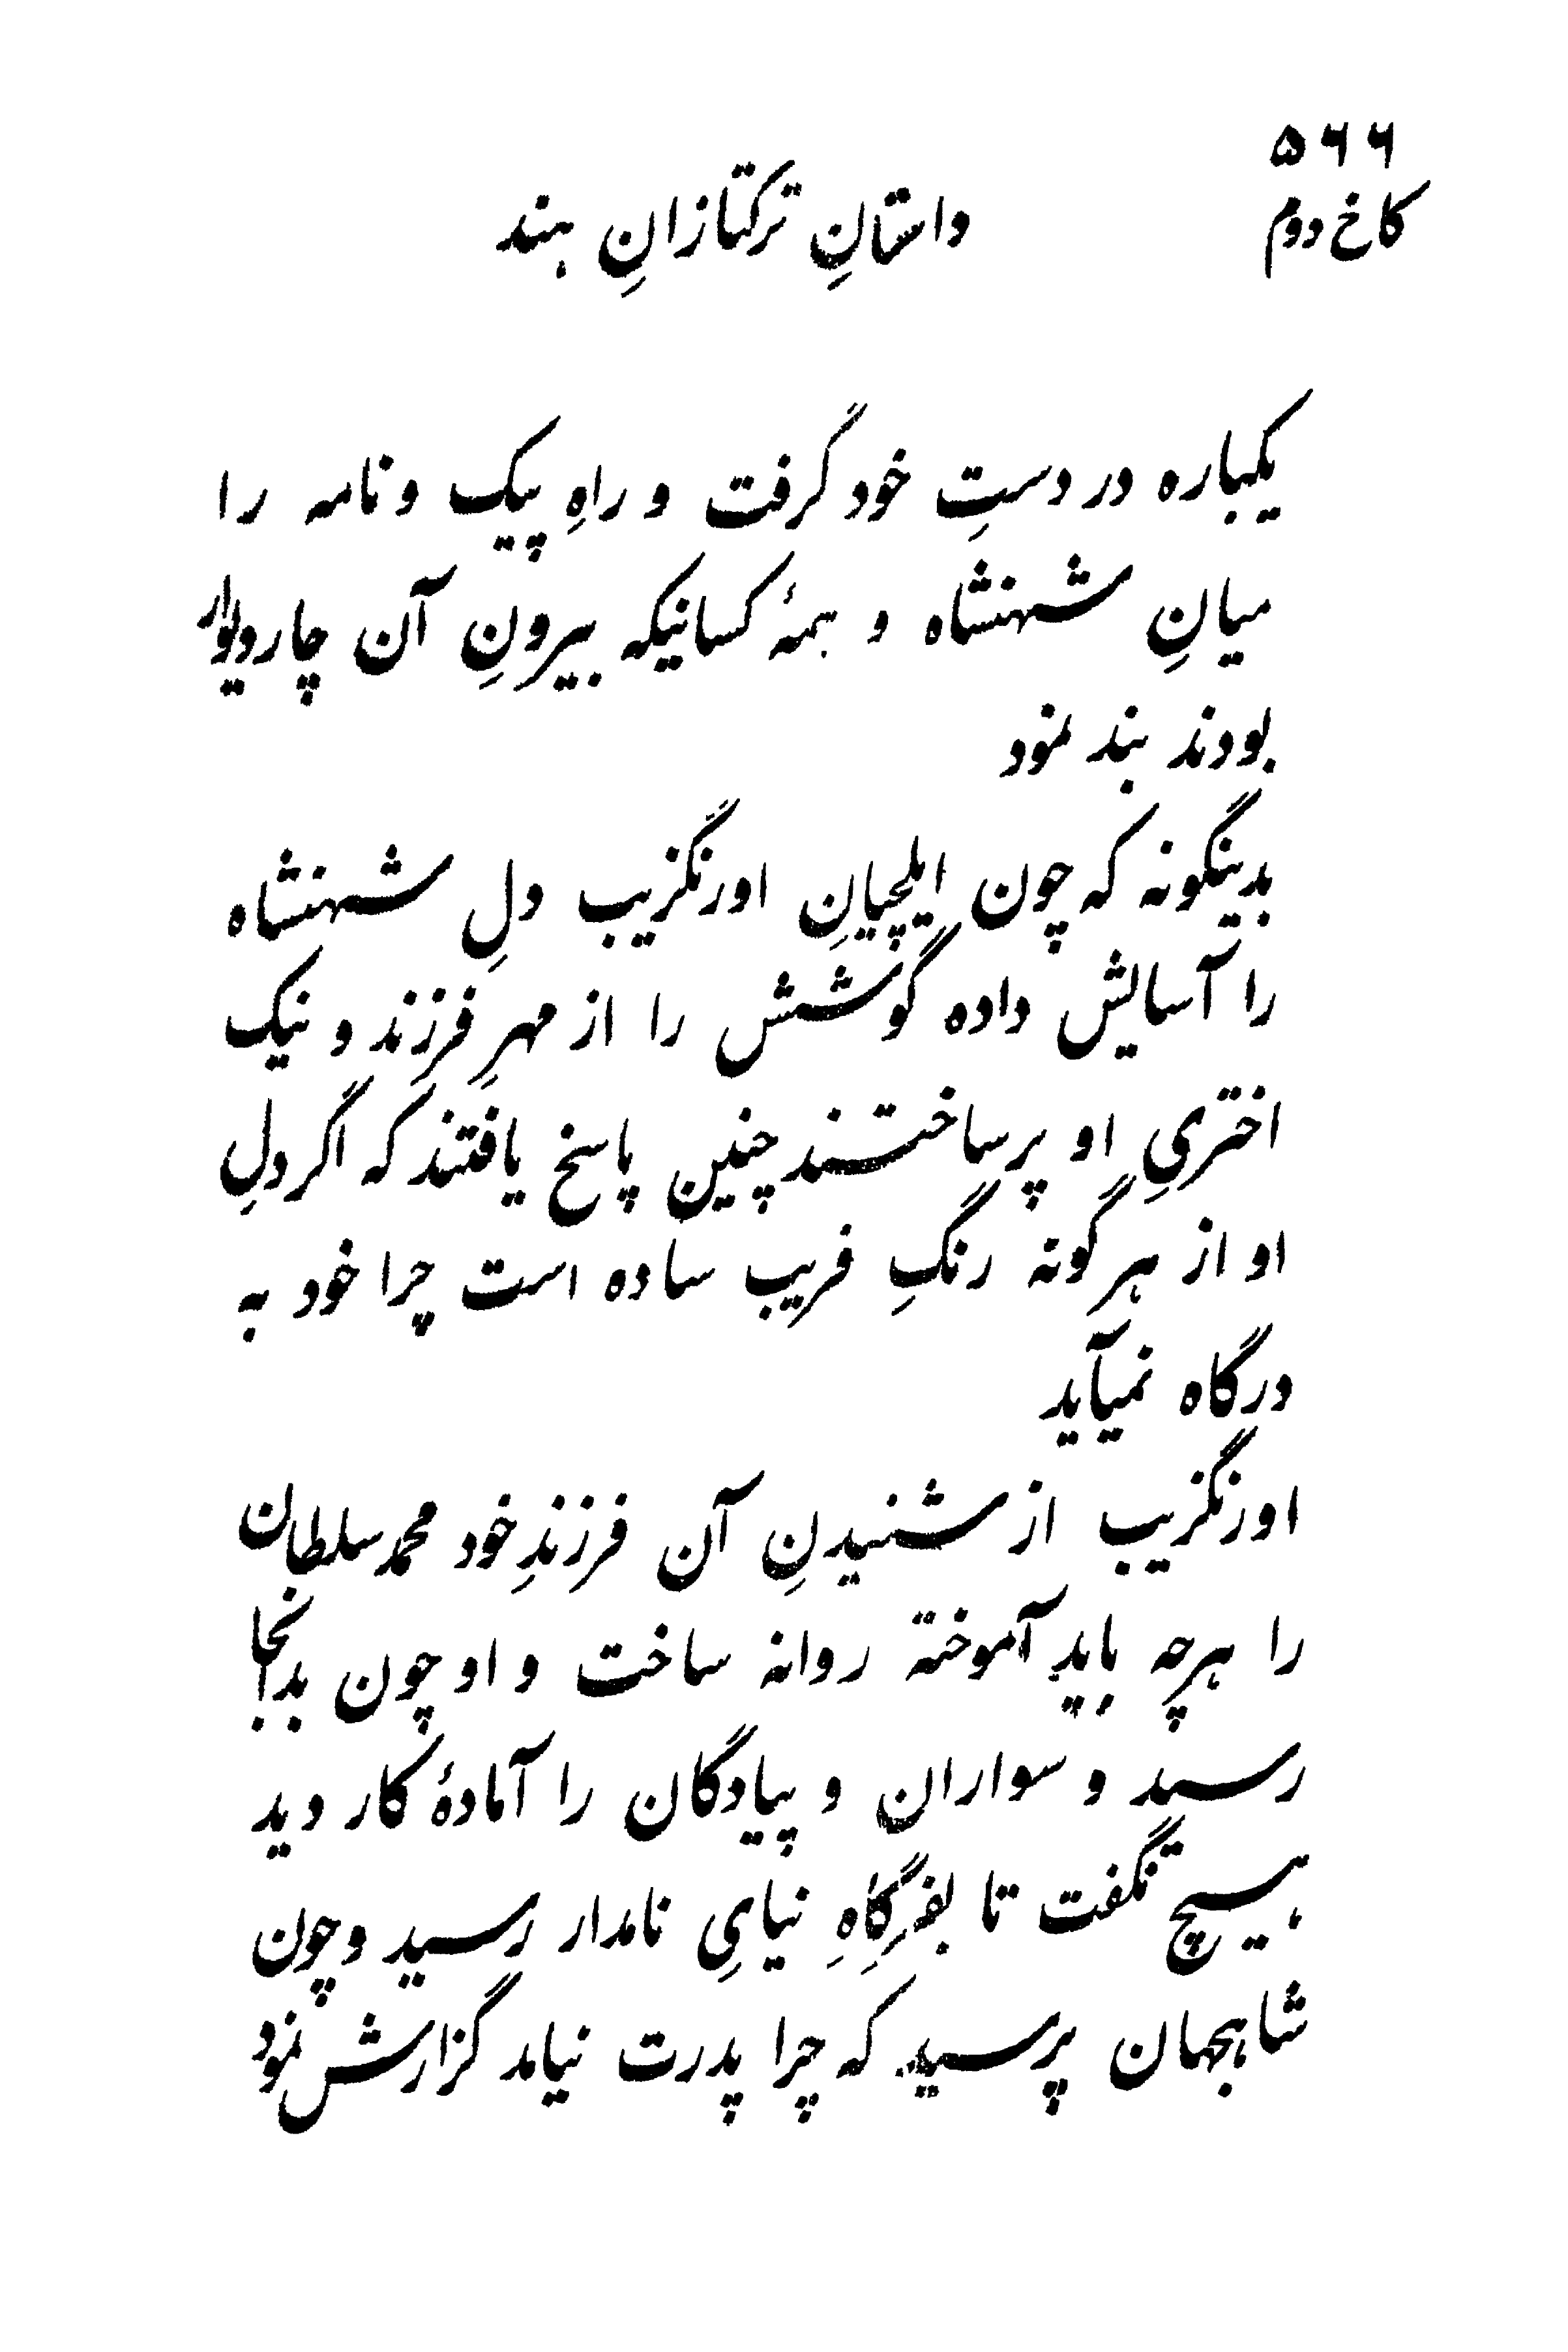 ۵۶۶
کاخ دوم
داستانِ ترکتازانِ هند
یکباره در دستِ خود گرفت و راهِ پیک و نامه را
میانِ شهنشاه و همهٔ کسانیکه بیرونِ آن چاردیوار
بودند بند نمود
بدینگونه که چون ایلچیانِ اورنگزیب دلِ شهنشاه
را آسایش داده گوشش را از مهرِ فرزند و نیک
اختریِ او پر ساختند چنین پاسخ یافتند که اگر دلِ
او از هرگونه رنگِ فریب ساده است چرا خود به
درگاه نمیآید
اورنگزیب از شنیدنِ آن فرزندِ خود محمد سلطان
را هرچه باید آموخته روانه ساخت و او چون بدانجا
رسید و سواران و پیادگان را آمادهٔ کار دید
هیچ نگفت تا بفرگاهِ نیایِ نامدار رسید و چون
شاهجهان پرسید که چرا پدرت نیامد گزارش نمود